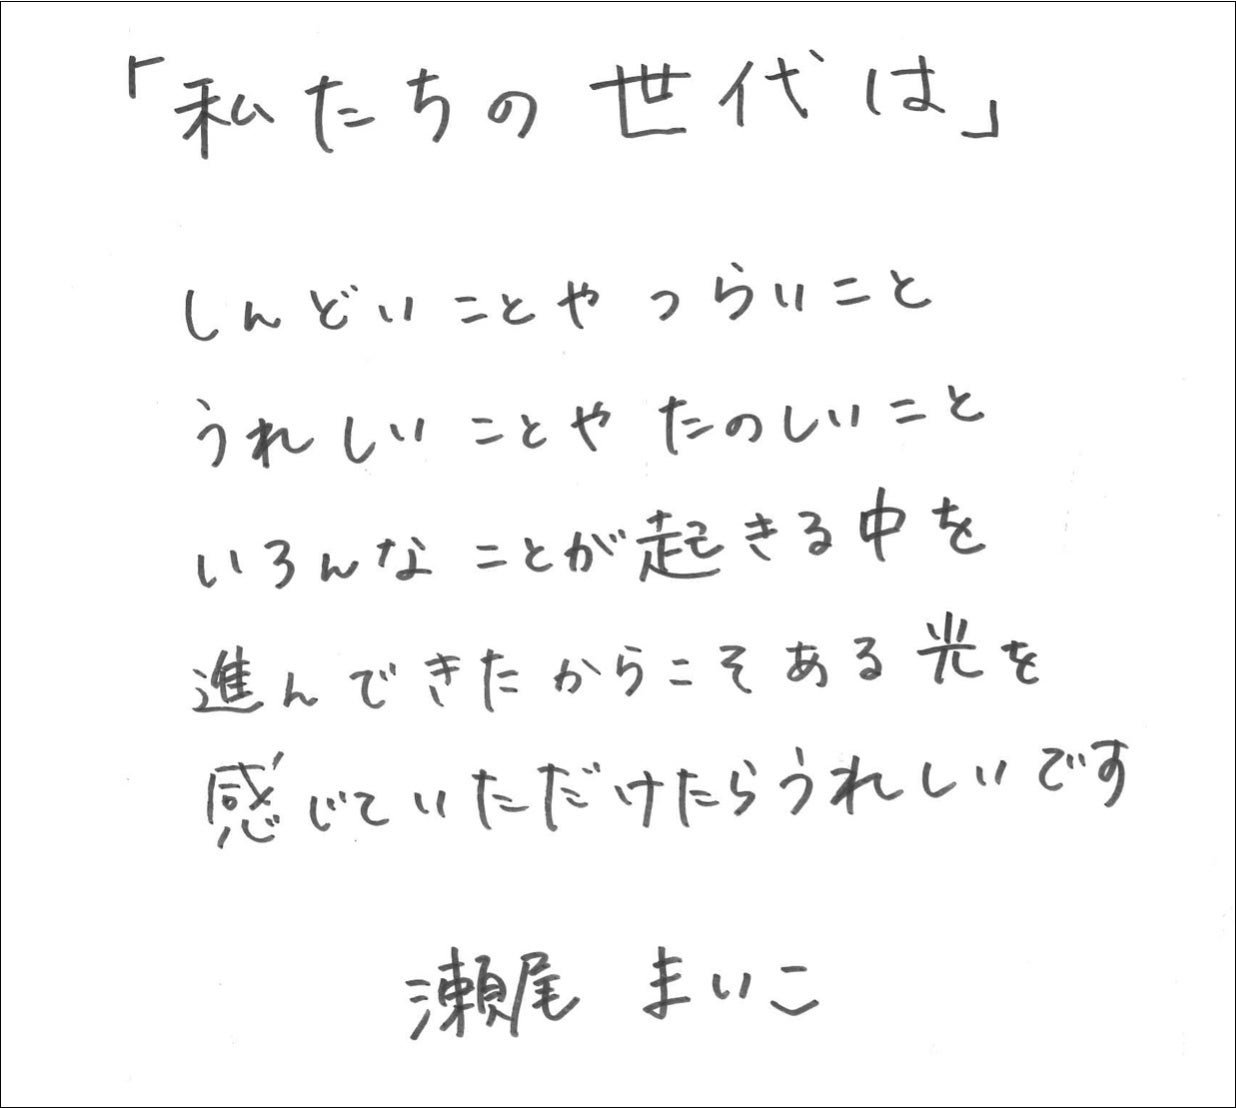 「私たちの世代は」
しんどいことやつらいこと
うれしいことやたのしいこと
いろんなことが起きる中を
進んできたからこそある光を
感じていただけたらうれしいです
瀬尾まいこ